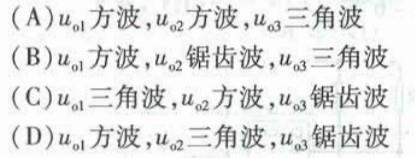 (A)uo1方波,uo2方波,uo3三角波
(B)uo1方波,uo2锯齿波,uo3三角波
(C)uo1三角波,uo2方波,uo3锯齿波
(D)uo1方波,uo2三角波,uo3锯齿波